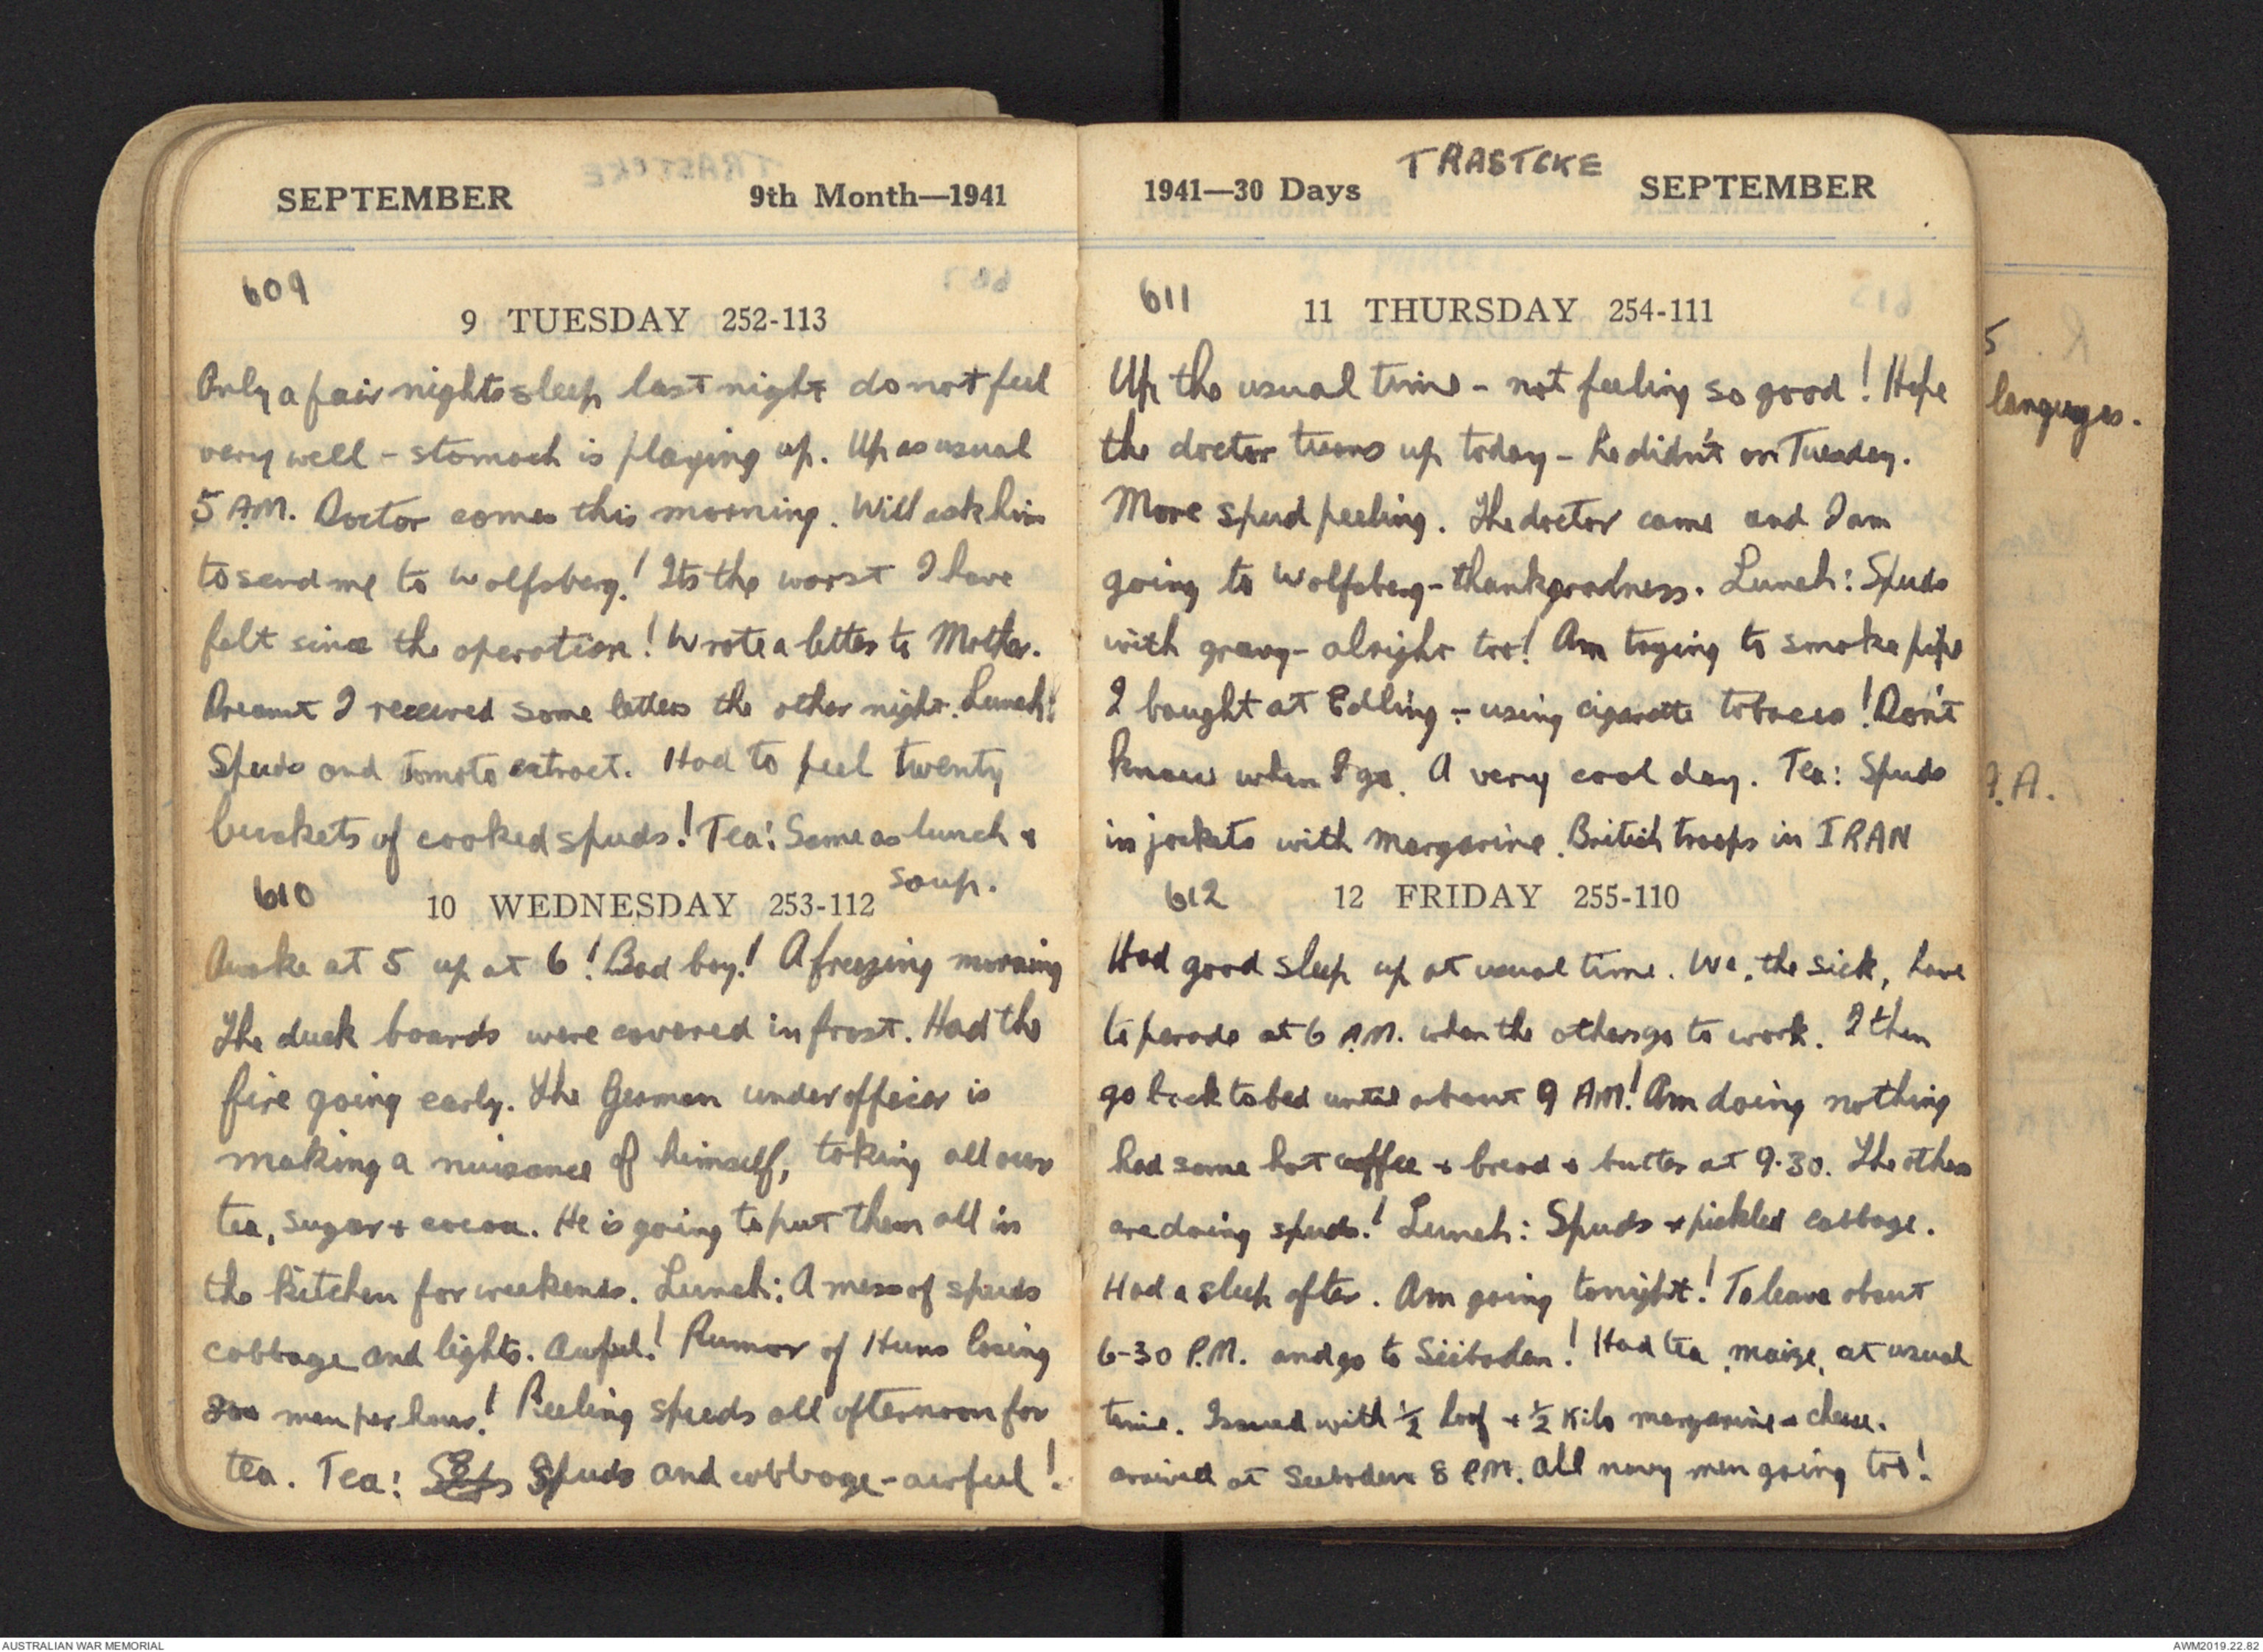 SEPTEMBER 9th Month—1941
609
9 TUESDAY 252-113
Only a fair nights sleep last night do not feel
very well - stomach is playing up. Up as usual
5 A.M. Doctor comes this morning. Will ask him
to send me to Wolfsberg! Its the worst I have
felt since the operation! Wrote a letter to Mother.
Dreamt I received some letters the other night. Lunch:
Spuds and tomato extract. Had to peel twenty
buckets of cooked spuds! Tea: Same as lunch +
soup.
610
10 WEDNESDAY 253-112
Awoke at 5 up at 6! Bad boy! A freezing morning
The duck boards were covered in frost. Had the
fire going early. The German under officer is
making a nuisance of himself, taking all our
tea, sugar + cocoa. He is going to put them all in
the kitchen for weekends. Lunch: A mess of spuds
cabbage and lights. Awful! Rumor of Huns losing
200 men per hour! Peeling spuds all afternoon for
tea. Tea: Spuds and cabbage - awful!
TRASTCKE
1941—30 Days SEPTEMBER
611
11 THURSDAY 254-111
Up the usual time - not feeling so good! Hope
the doctor turns up today - he didn't on Tuesday.
More spud peeling. The doctor came and I am
going to Wolfsberg - thank goodness. Lunch: Spuds
with gravy - alright too! Am trying to smoke pipe
I bought at Edling - using cigarette tobacco! Don't
know when I go. A very cool day. Tea: Spuds
in jackets with margarine. British troops in IRAN
612
12 FRIDAY 255-110
Had good sleep up at usual time. We, the sick, have
to parade at 6 A.M. when the others go to work. I then
go back to bed until about 9 AM! Am doing nothing
had some hot coffee + bread + butter at 9.30. The others
are doing spuds! Lunch: Spuds + pickled cabbage.
Had a sleep after. Am going tonight! To leave about
6-30 P.M. and go to Seeboden! Had tea, maize, at usual
time. Issued with ½ loaf + ½ Kilo margarine + cheese.
arrived at Seeboden 8 P.M. All navy men going too!
5
languages.
.A.
AUSTRALIAN WAR MEMORIAL AWM2019.22.82